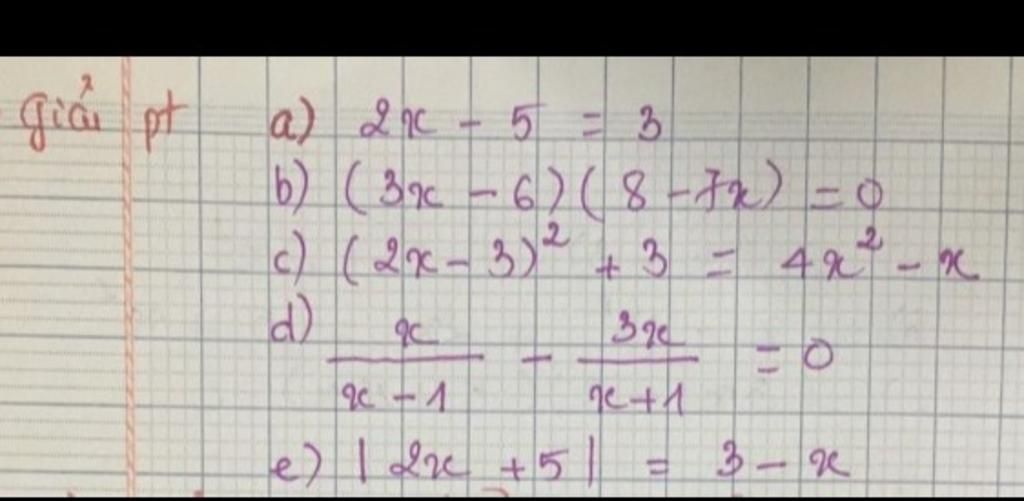 giải pt a) 2x - 5 = 3
b) (3x - 6)(8 - 7x) = 0
c) (2x - 3)² + 3 = 4x² - x
d) x/(x - 1) - 3x/(x + 1) = 0
e) |2x + 5| = 3 - x